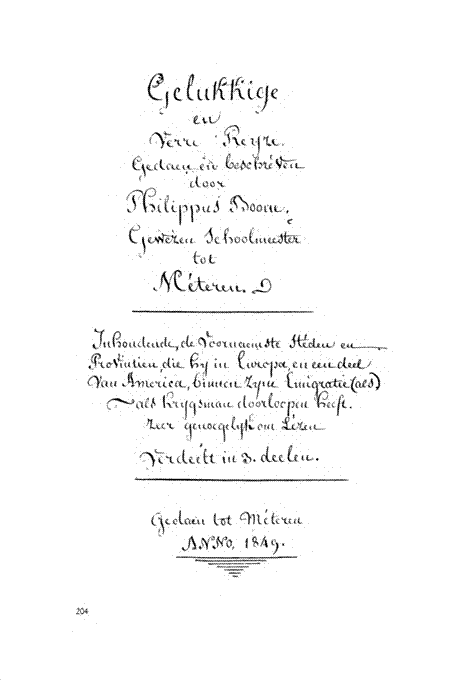 Gelukkige
en
Verre Reyze.
Gedaen en beschréven
door
Philippus Boone,
Gewézen Schoolmeester
tot
Méteren.
Inhoudende, de Voornaemste Stéden en
Provintien, die hy in Europa, en een deel
Van America, binnen zyne Emigratie (als)
als krygsman doorloopen heeft.
Zeer genoegelyk om Lézen
Verdeélt in 3. deelen.
Gedaen tot Méteren
ANNO, 1849.
204